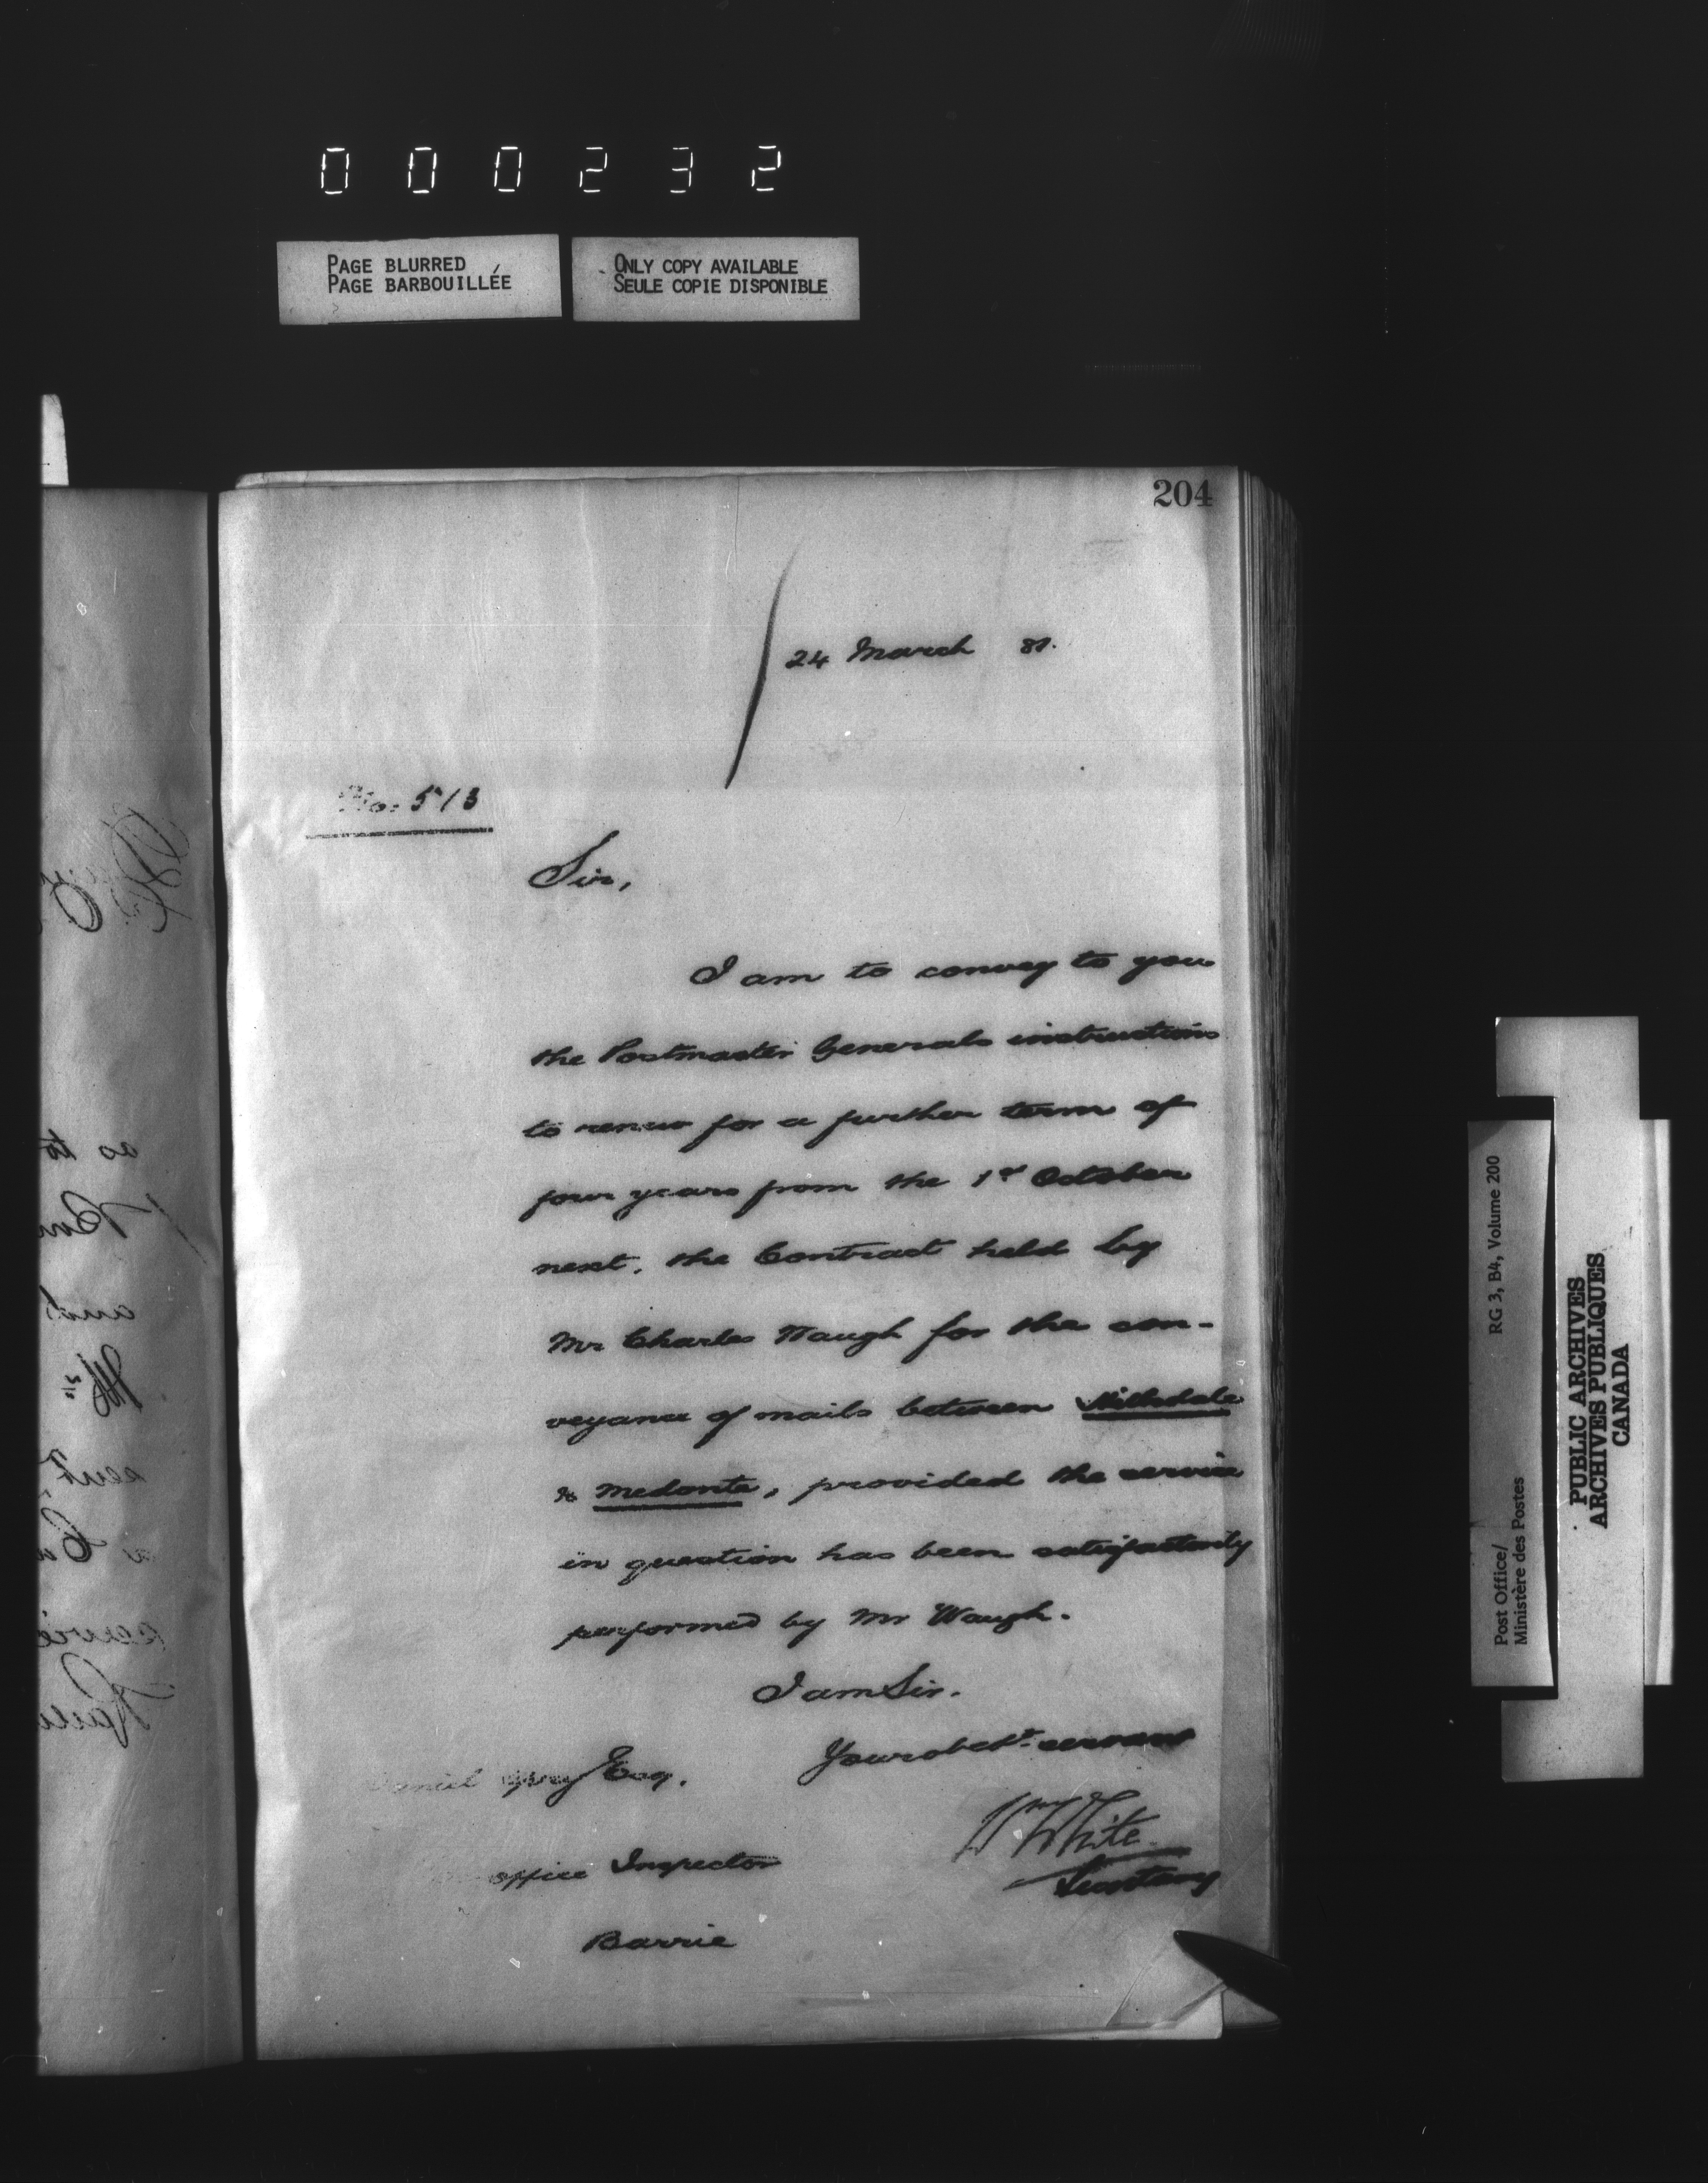 000232
PAGE BLURRED
PAGE BARBOUILLÉE
ONLY COPY AVAILABLE
SEULE COPIE DISPONIBLE
204
24 March
No. 513
Sir,
I am to convey to you
the Postmaster Generals instructions
to renew for a further term of
four years from the 1st October
next, the Contract held by
Mr Charles Waugh for the con-
veyance of mails between
& Medonte, provided the service
in question has been satisfactorily
performed by Mr Waugh.
I am Sir.
Your obedt. servant
Wm White
Secretary
Daniel Esq.
office Inspector
Barrie
RG 3, B4, Volume 200
Post Office/
Ministère des Postes
PUBLIC ARCHIVES
ARCHIVES PUBLIQUES
CANADA